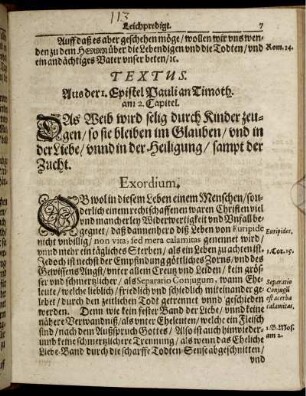 113
Leichpredigt. 7
Auff daß es aber geschehen möge / wollen wir vns wen-
den zu dem HERRN über die Lebendigen vnd die Todten / vnd Rom. 14.
ein andächtiges Vater vnser beten / ꝛc.
TEXTUS.
Aus der 1. Epistel Pauli an Timoth.
am 2. Capitel.
DAs Weib wird selig durch Kinder zeu-
gen / so sie bleiben im Glauben / vnd in
der Liebe / vnnd in der Heiligung / sampt der
Zucht.
Exordium.
OB wol in diesem Leben einem Menschen / son-
derlich einem rechtschaffenen waren Christen viel
vnd mancherley Widerwertigkeit vnd Vnfall be-
gegnet / daß dannenhero diß Leben von Euripide Euripides.
nicht vnbillig / non vita, sed mera calamitas genennet wird /
vnnd mehr ein tägliches Sterben / als ein Leben zu achten ist. 1. Cor. 15.
Jedoch ist nechst der Empfindung göttliches Zorns / vnd des
Gewissens Angst / vnter allem Creutz vnd Leiden / kein grös-
ser vnd schmertzlicher / als Separatio Conjugum, wann Ehe- Separatio
leute / welche lieblich / friedlich vnd schiedlich miteinander ge- Conjugũ
lebet / durch den zeitlichen Todt getrennet vnnd geschieden est acerba
werden. Denn wie kein fester Band der Liebe / vnnd keine calamitas,
nähere Verwandniß / als vnter Eheleuten / welche ein Fleisch
sind / nach dem Außspruch Gottes / Also ist auch hinwieder- 1. B. Mos.
umb keine schmertzlichere Trennung / als wenn das Eheliche am 2.
Liebe-Band durch die scharffe Todten-Sense abgeschnitten /
vnd